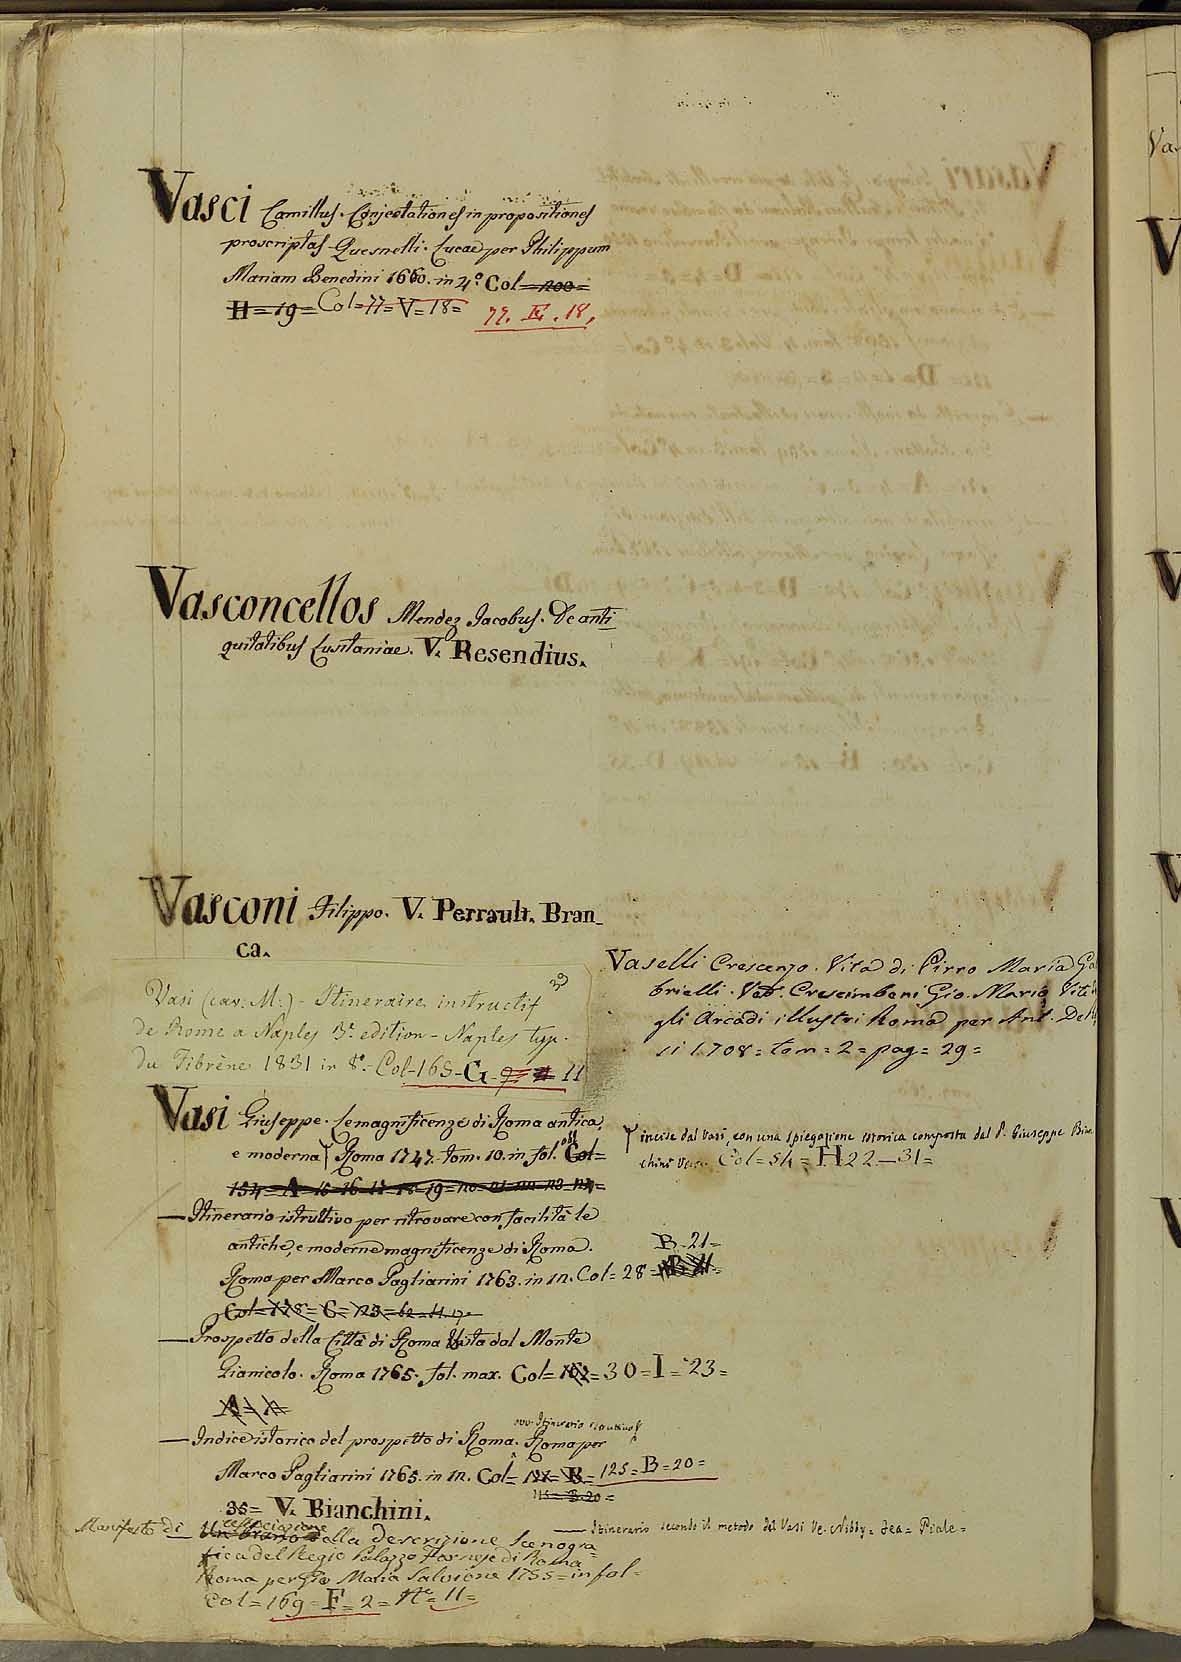 Vasci Camillus. Conjectationes in propositiones
proscriptas Quesnelli. Lucae per Philippum
Mariam Benedini 1660. in 4.° Col = 200 =
H = 19 = Col = 77 = V = 18 = 77. E. 18.
Vasconcellos Mendez Jacobus. De anti
quitatibus Lusitaniae. V. Resendius.
Vasconi Filippo. V. Perrault. Bran_
ca.
Vasi (cav. M.) - Itineraire instructif
de Rome a Naples 3.e edition - Naples typ.
du Fibrène 1831 in 8.° - Col-165-G- 11
Vaselli Crescenzo. Vita di Pirro Maria Ga
brielli. Ved. Crescimbeni Gio. Mario Vite de
gli Arcadi illustri Roma per Ant. De Ros
si 1708 = tom = 2 = pag = 29 =
Vasi Giuseppe. Le magnificenze di Roma antica,
e moderna Roma 1747. tom. 10. in fol. obl Col =
154 = A = 15 - 16 - 17 - 18 - 19 = 20 = 21 = 22 = 23 = 24 =
incise dal Vasi, con una spiegazione istorica composta dal P. Giuseppe Bian
chini Veron. Col = 54 = H 22 — 31 =
— Itinerario istruttivo per ritrovare con facilità le
antiche, e moderne magnificenze di Roma.
B - 21 =
Roma per Marco Pagliarini 1763. in 12. Col = 28 =
Col = 178 = C = 23 =
— Prospetto della Città di Roma Vista dal Monte
Gianicolo. Roma 1765. fol. max. Col = 102 = 30 = I = 23 =
A = 12
ovv. Itinerario
— Indice istorico del prospetto di Roma. Roma per
Marco Pagliarini 1765. in 12. Col = 121 = B = 125 = B = 20 =
115 = B. 20 =
35 = V. Bianchini.
Manifesto di associazione
Un brano della descrizione Scenogra
fica del Regio Palazzo Farnese di Roma
Roma per Gio Maria Salvioni 1755 = in fol =
Col = 169 = F = 2 = N.e = 11 =
— Itinerario secondo il metodo del Vasi Ve. Nibby = Fea = Piale =